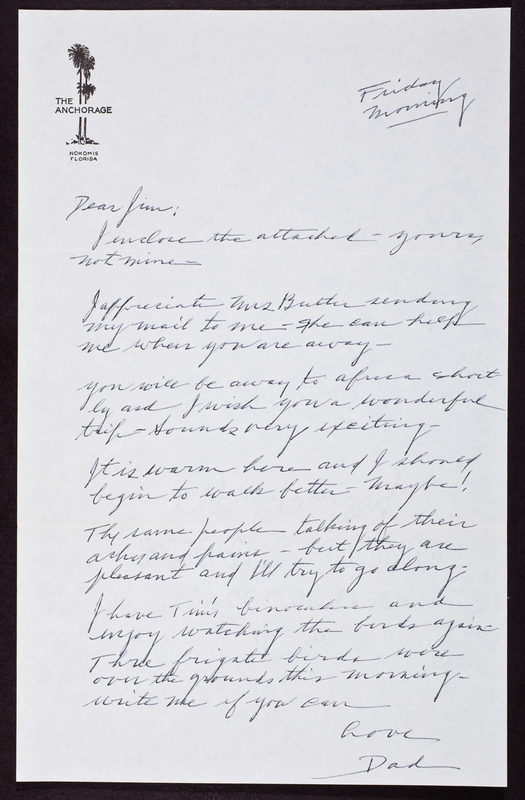 THE
ANCHORAGE
NOKOMIS
FLORIDA
Friday
Morning
Dear Jim:
I enclose the attached - yours,
not mine -
I appreciate Mrs Butler sending
my mail to me - She can help
me when you are away -
You will be away to africa short
ly and I wish you a wonderful
trip - Sounds very exciting -
It is warm here and I should
begin to walk better - Maybe!
The same people talking of their
aches and pains - but they are
pleasant and I'll try to go along -
I have Tim's binoculars and
enjoy watching the birds again -
Three frigate birds were
over the grounds this morning -
write me if you can
Love
Dad